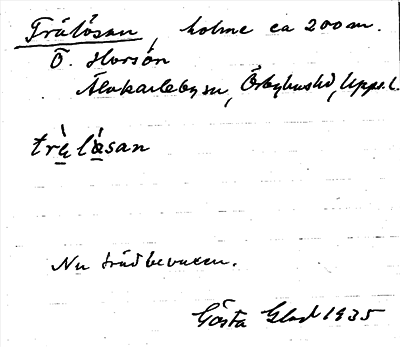 Trälösan, holme ca 200 m.
Ö. Horsön
Älvkarleby sn, Örbyhus hd, Upps. l.
trèlásan
Nu trädbevuxen.
Gösta Glad 1935